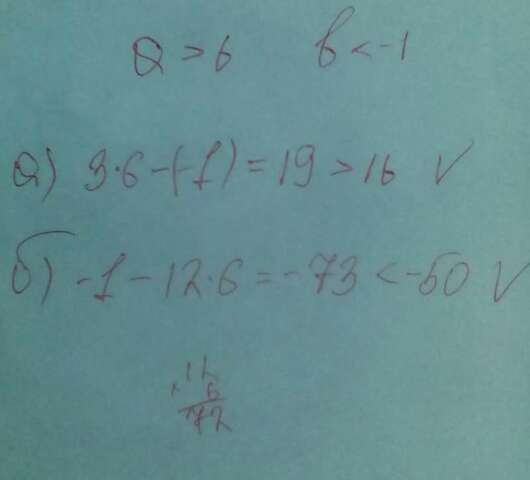 a > 6 в < -1
а) 3·6-(-1) = 19 > 16 V
б) -1 - 12·6 = -73 < -50 V
12
× 6
72